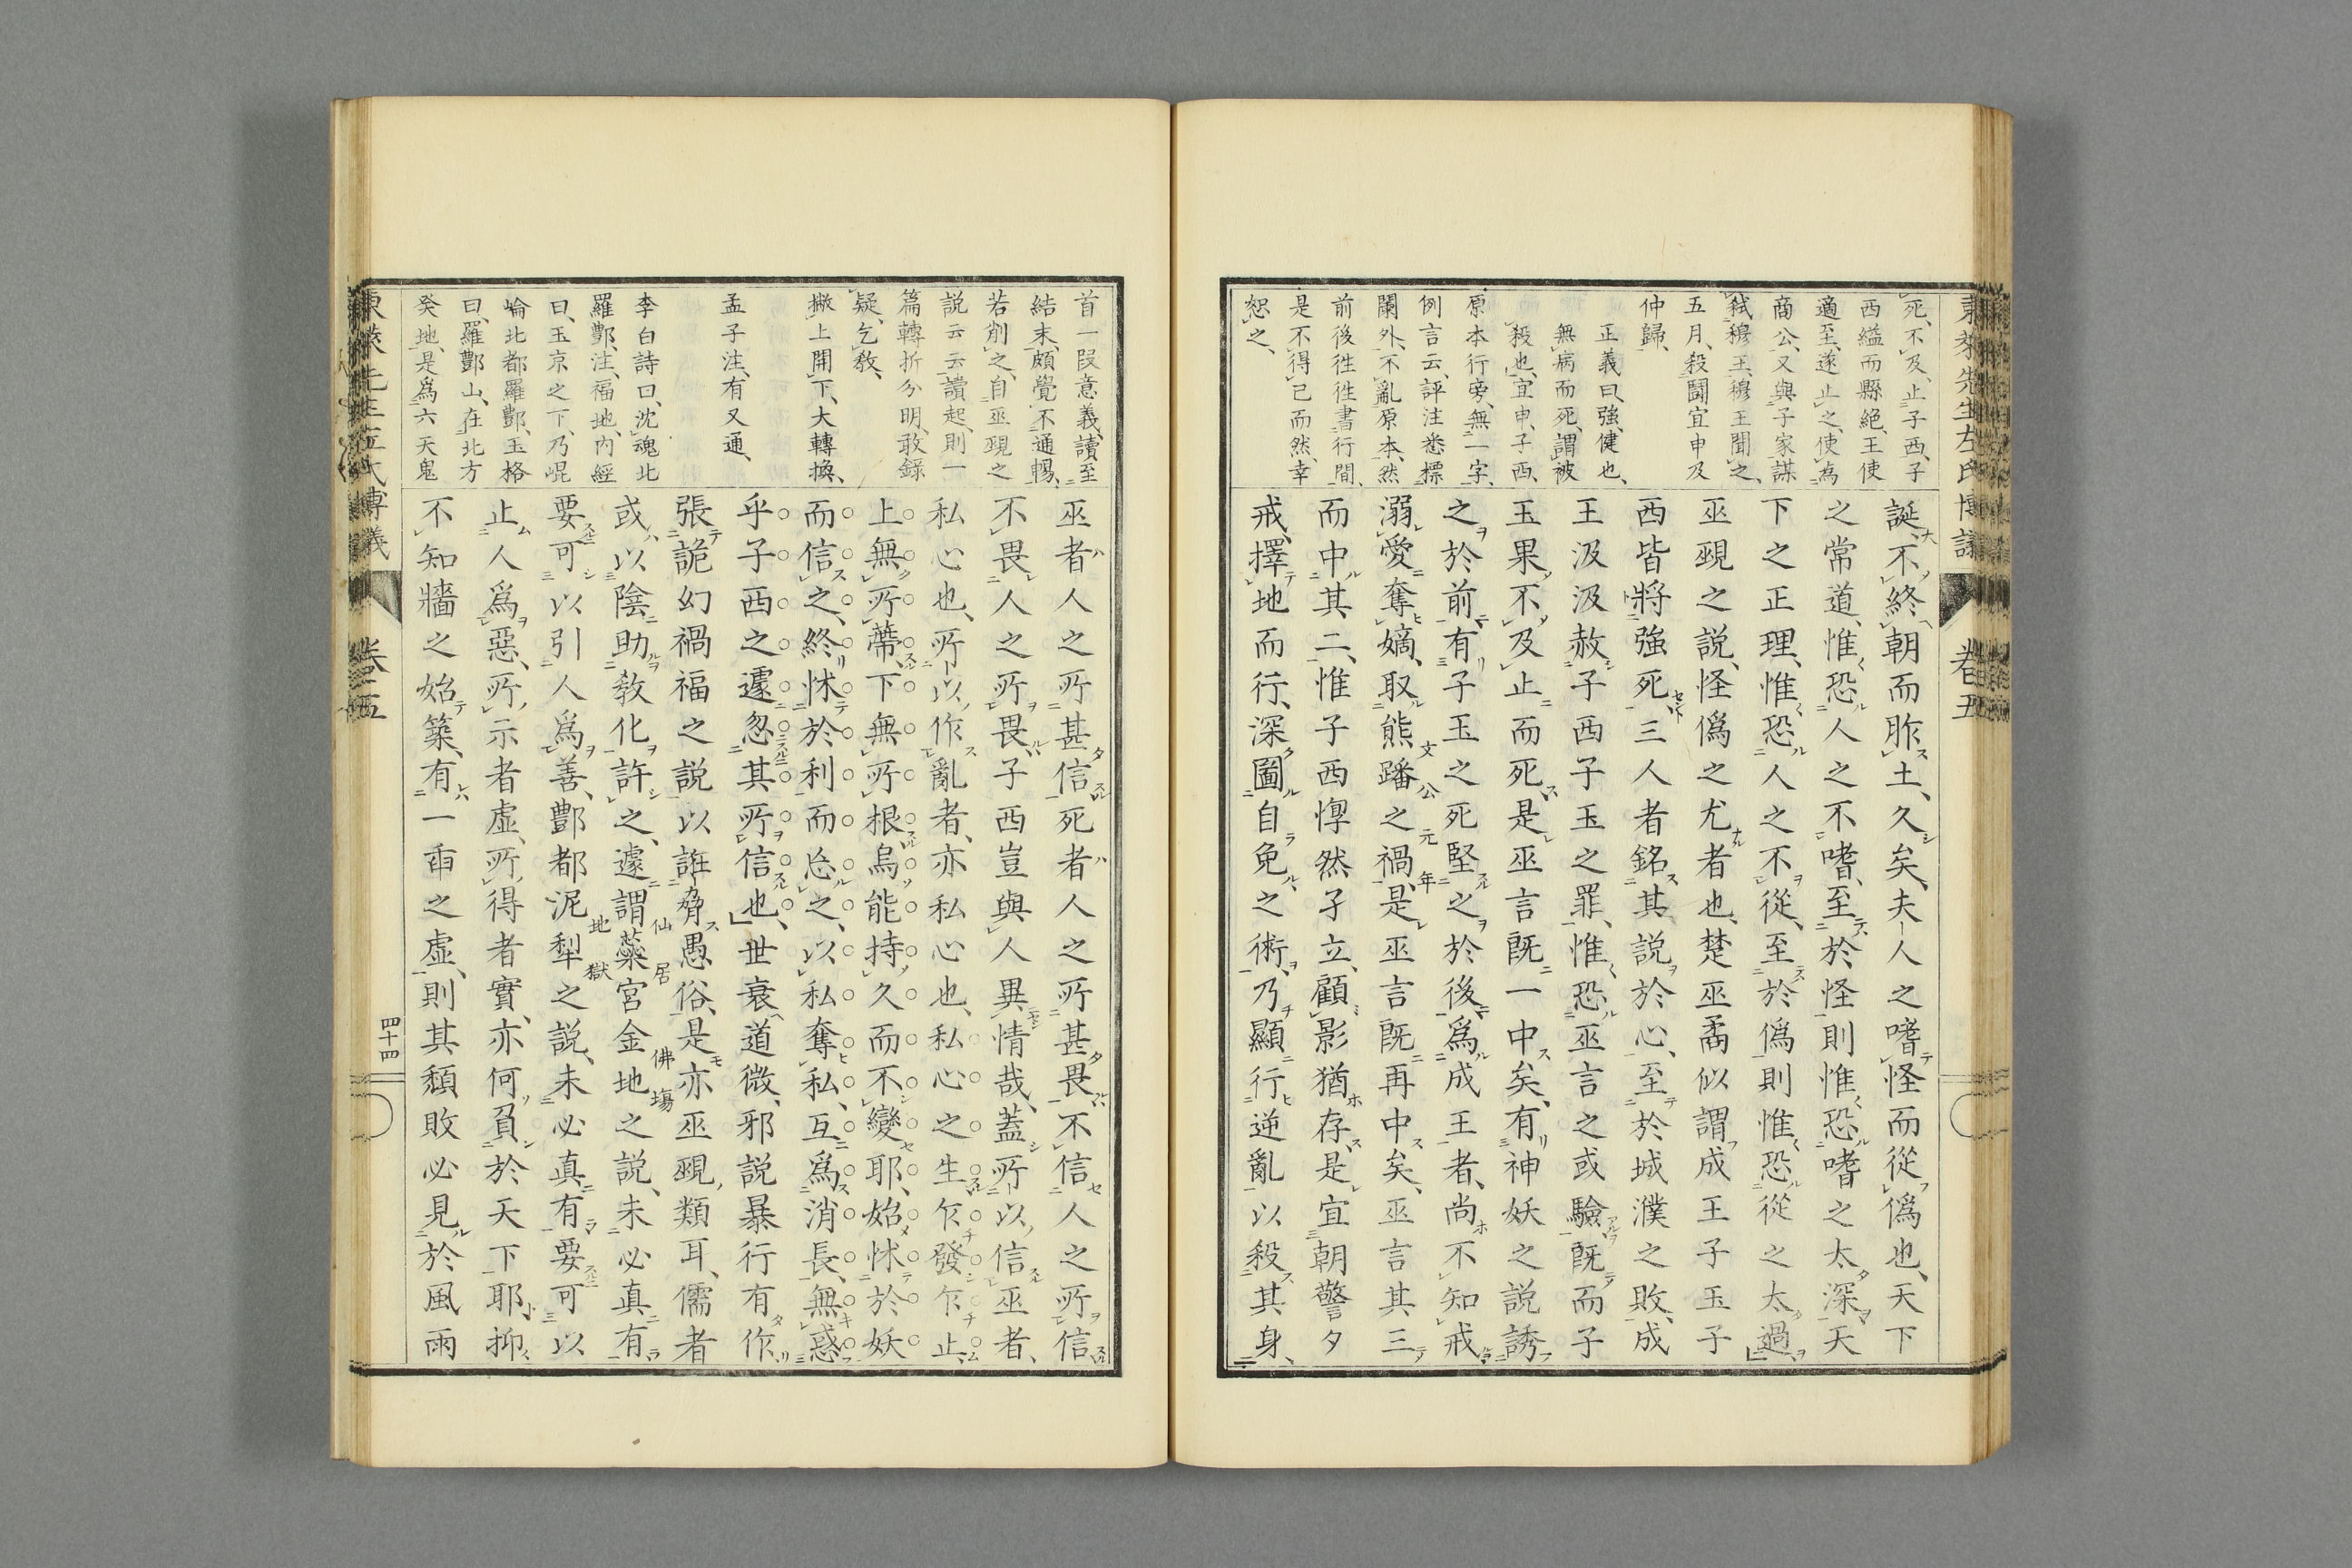 東萊先生左氏博議
卷五
死、不及、止子西、子
西縊而縣絕、王使
適至、遂止之、使爲
商公、又與子家謀
弑穆王、穆王聞之、
五月、殺鬪宜申及
仲歸、
正義曰、強、健也、
無病而死、謂被
殺也、宜申、子西、
原本行旁、無一字、
例言云、評注悉標
闌外、不亂原本、然
前後徃徃書行間、
是不得已而然、幸
恕之、
誕、不終朝而胙土、久矣、夫人之嗜怪而從僞也、天下
之常道、惟恐人之不嗜、至於怪則惟恐嗜之太深、天
下之正理、惟恐人之不從、至於僞則惟恐從之太過、
巫覡之説、怪僞之尤者也、楚巫矞似謂成王子玉子
西皆將強死、三人者銘其説於心、至於城濮之敗、成
王汲汲赦子西子玉之罪、惟恐巫言之或驗、既而子
玉果不及止而死、是巫言既一中矣、有神妖之説誘
之於前、有子玉之死堅之於後、爲成王者、尚不知戒、
溺愛奪嫡、取熊蹯之禍、是巫言既再中矣、巫言其三
文公元年
而中其二、惟子西惸然子立、顧影猶存、是宜朝警夕
戒、擇地而行、深圖自免之術、乃顯行逆亂以殺其身、
首一段意義、讀至
結末、頗覺不通暢、
若削之、自巫覡之
説云云讀起、則一
篇轉折分明、敢錄
疑、乞教、
撇上開下、大轉換、
孟子注、有又通、
李白詩曰、沈魂北
羅酆、注、福地、内經
曰、玉京之下、乃崐
崘北都羅酆、玉格
曰、羅酆山、在北方
癸地、是爲六天鬼
巫者人之所甚信、死者人之所甚畏、不信人之所信
不畏人之所畏、子西豈與人異情哉、蓋所以信巫者、
私心也、所以作亂者、亦私心也、私心之生乍發乍止、
上無所蔕、下無所根、烏能持久而不變耶、始怵於妖
而信之、終怵於利而忘之、以私奪私、互爲消長、無惑
乎子西之遽忽其所信也、世衰道微、邪説暴行有作、
張詭幻禍福之説以誑脅愚俗、是亦巫覡類耳、儒者
或以陰助教化許之、遽謂蘂宮金地之説、未必真有
仙居
佛場
要可以引人爲善、酆都泥犁之説、未必真有要可以
地獄
止人爲惡、所示者虛、所得者實、亦何負於天下耶、抑
不知牆之始築、有一臿之虛、則其頹敗必見於風雨
卷五
四十四